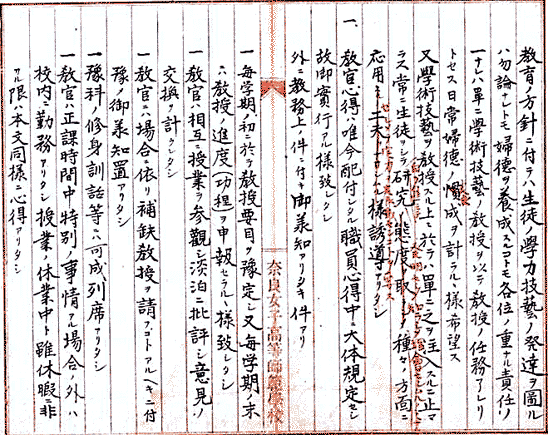 教育ノ方針ニ付テハ生徒ノ學力技藝ノ発達ヲ圖ル
ハ勿論ナレトモ婦德ヲ養成スルコトモ各位ノ重ナル責任ノ
一ナレハ單ニ學術技藝ノ教授ヲ以テ教授ノ任務了レリ
トセス日常婦德ノ慣成ヲ計ラルヽ様希望ス
又學術技藝ヲ教授スル上ニ於テハ單ニ之ヲ注入スルニ止マ
ラス常ニ生徒ヲシテ研究ノ態度ヲ取ラシメ種々ノ方面ニ
応用
様誘導アリタシ
一、教官心得ハ唯今配付シタル職員心得中ニ大体規定セシ
故御實行アル様致シタシ
外ニ教務上ノ件ニ付キ御義知アリタキ件アリ
奈良女子高等師範學校
一 毎学期ノ初ニ於テ教授要目ヲ豫定シ又毎学期ノ末
ニハ教授ノ進度(功程)ヲ申報セラルヽ様致シタシ
一 教官ハ相互ニ授業ヲ参觀シ淡泊ニ批評シ意見ノ
交換ヲ計ラレタシ
一 教官ニハ場合ニ依リ補缺教授ヲ請フコトアルヘキニ付
豫メ御義知置アリタシ
一 豫科ノ修身訓話等ニハ可成列席アリタシ
一 教官ハ正課時間中特別ノ事情アル場合ノ外ハ
校内ニ勤務アリタシ授業ノ休業中ト雖休暇ニ非
アル限ハ本文同様ニ心得アリタシ